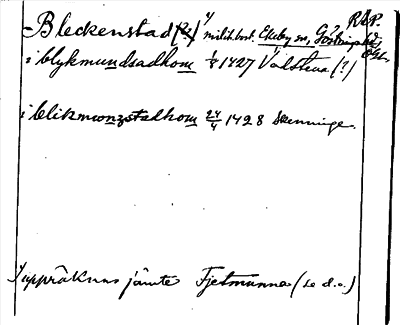 R.A.P.
Bleckenstad (?) milit. bost. Ekeby sn, Göstrings hd Ögl.
i blykmundsadhom 1/8 1427 Valstena (?)
i blikmonzstadhom 24/4 1428 Skenninge.
Uppräknas jämte Fjetmunna (se d. o.)